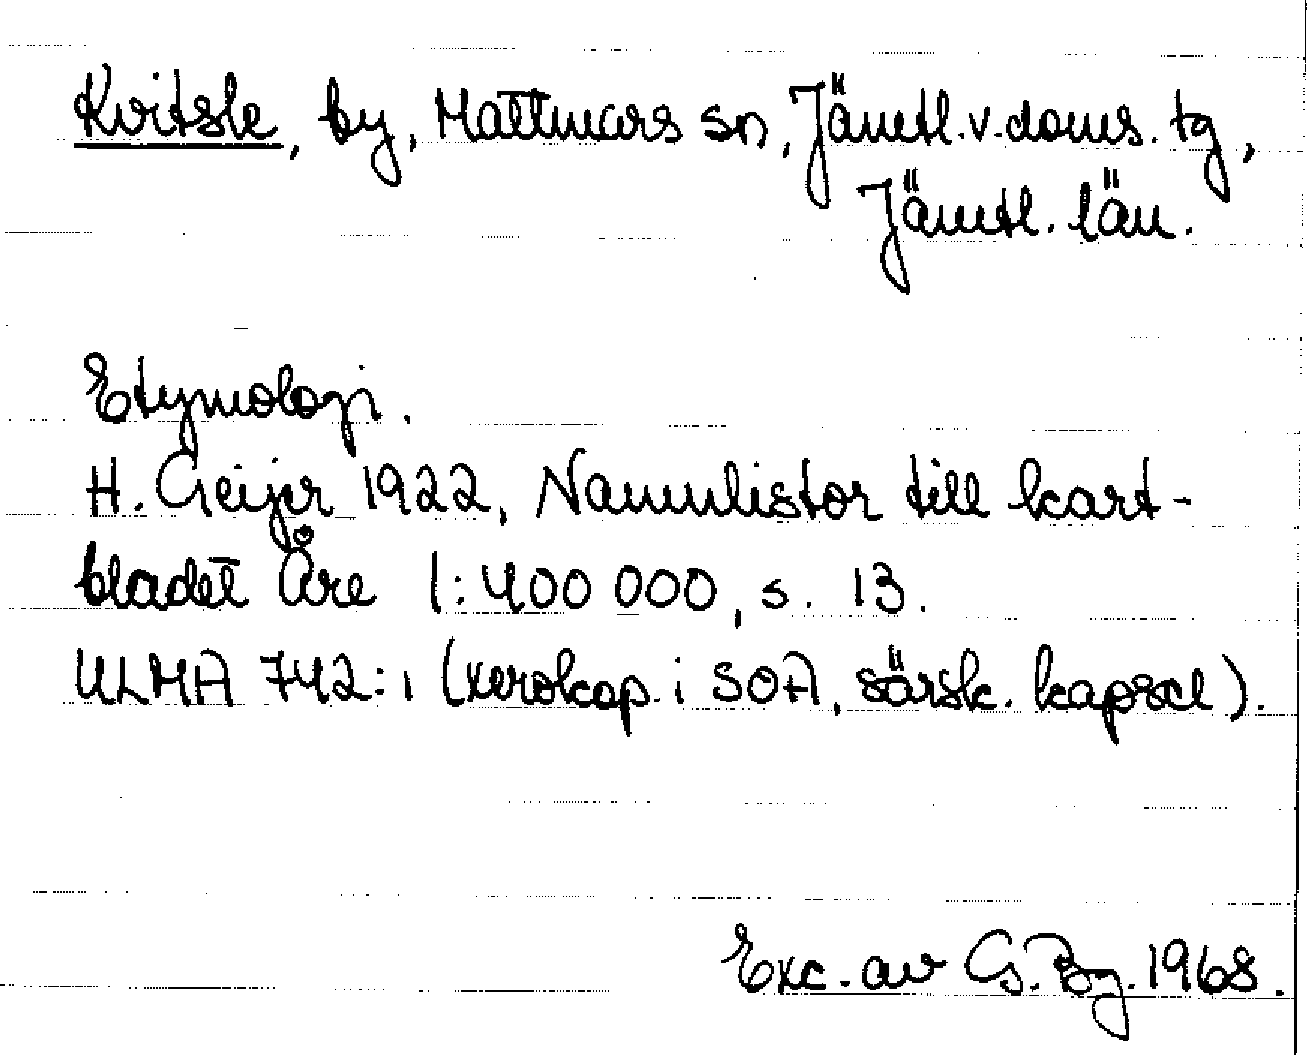 Kvitsle, by, Mattmars sn, Jämtl. v. doms. tg,
Jämtl. län.
Etymologi.
H. Geijer 1922, Namnlistor till kart-
bladet Åre 1:400 000, s. 13.
ULMA 742:1 (xerokop. i SOA, särsk. kapsel).
Exc. av G. By. 1968.